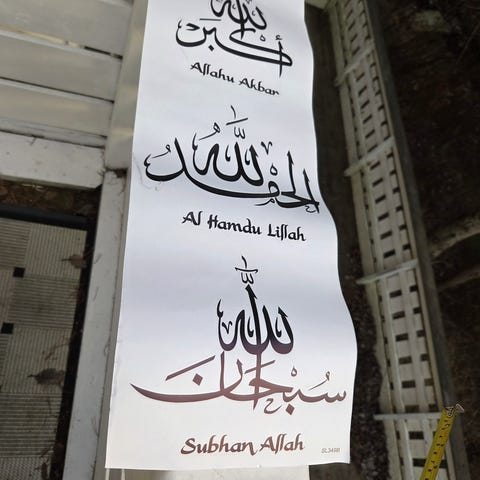 الله أكبر
Allahu Akbar
الحمد لله
Al Hamdu Lillah
سبحان الله
Subhan Allah
SL3498